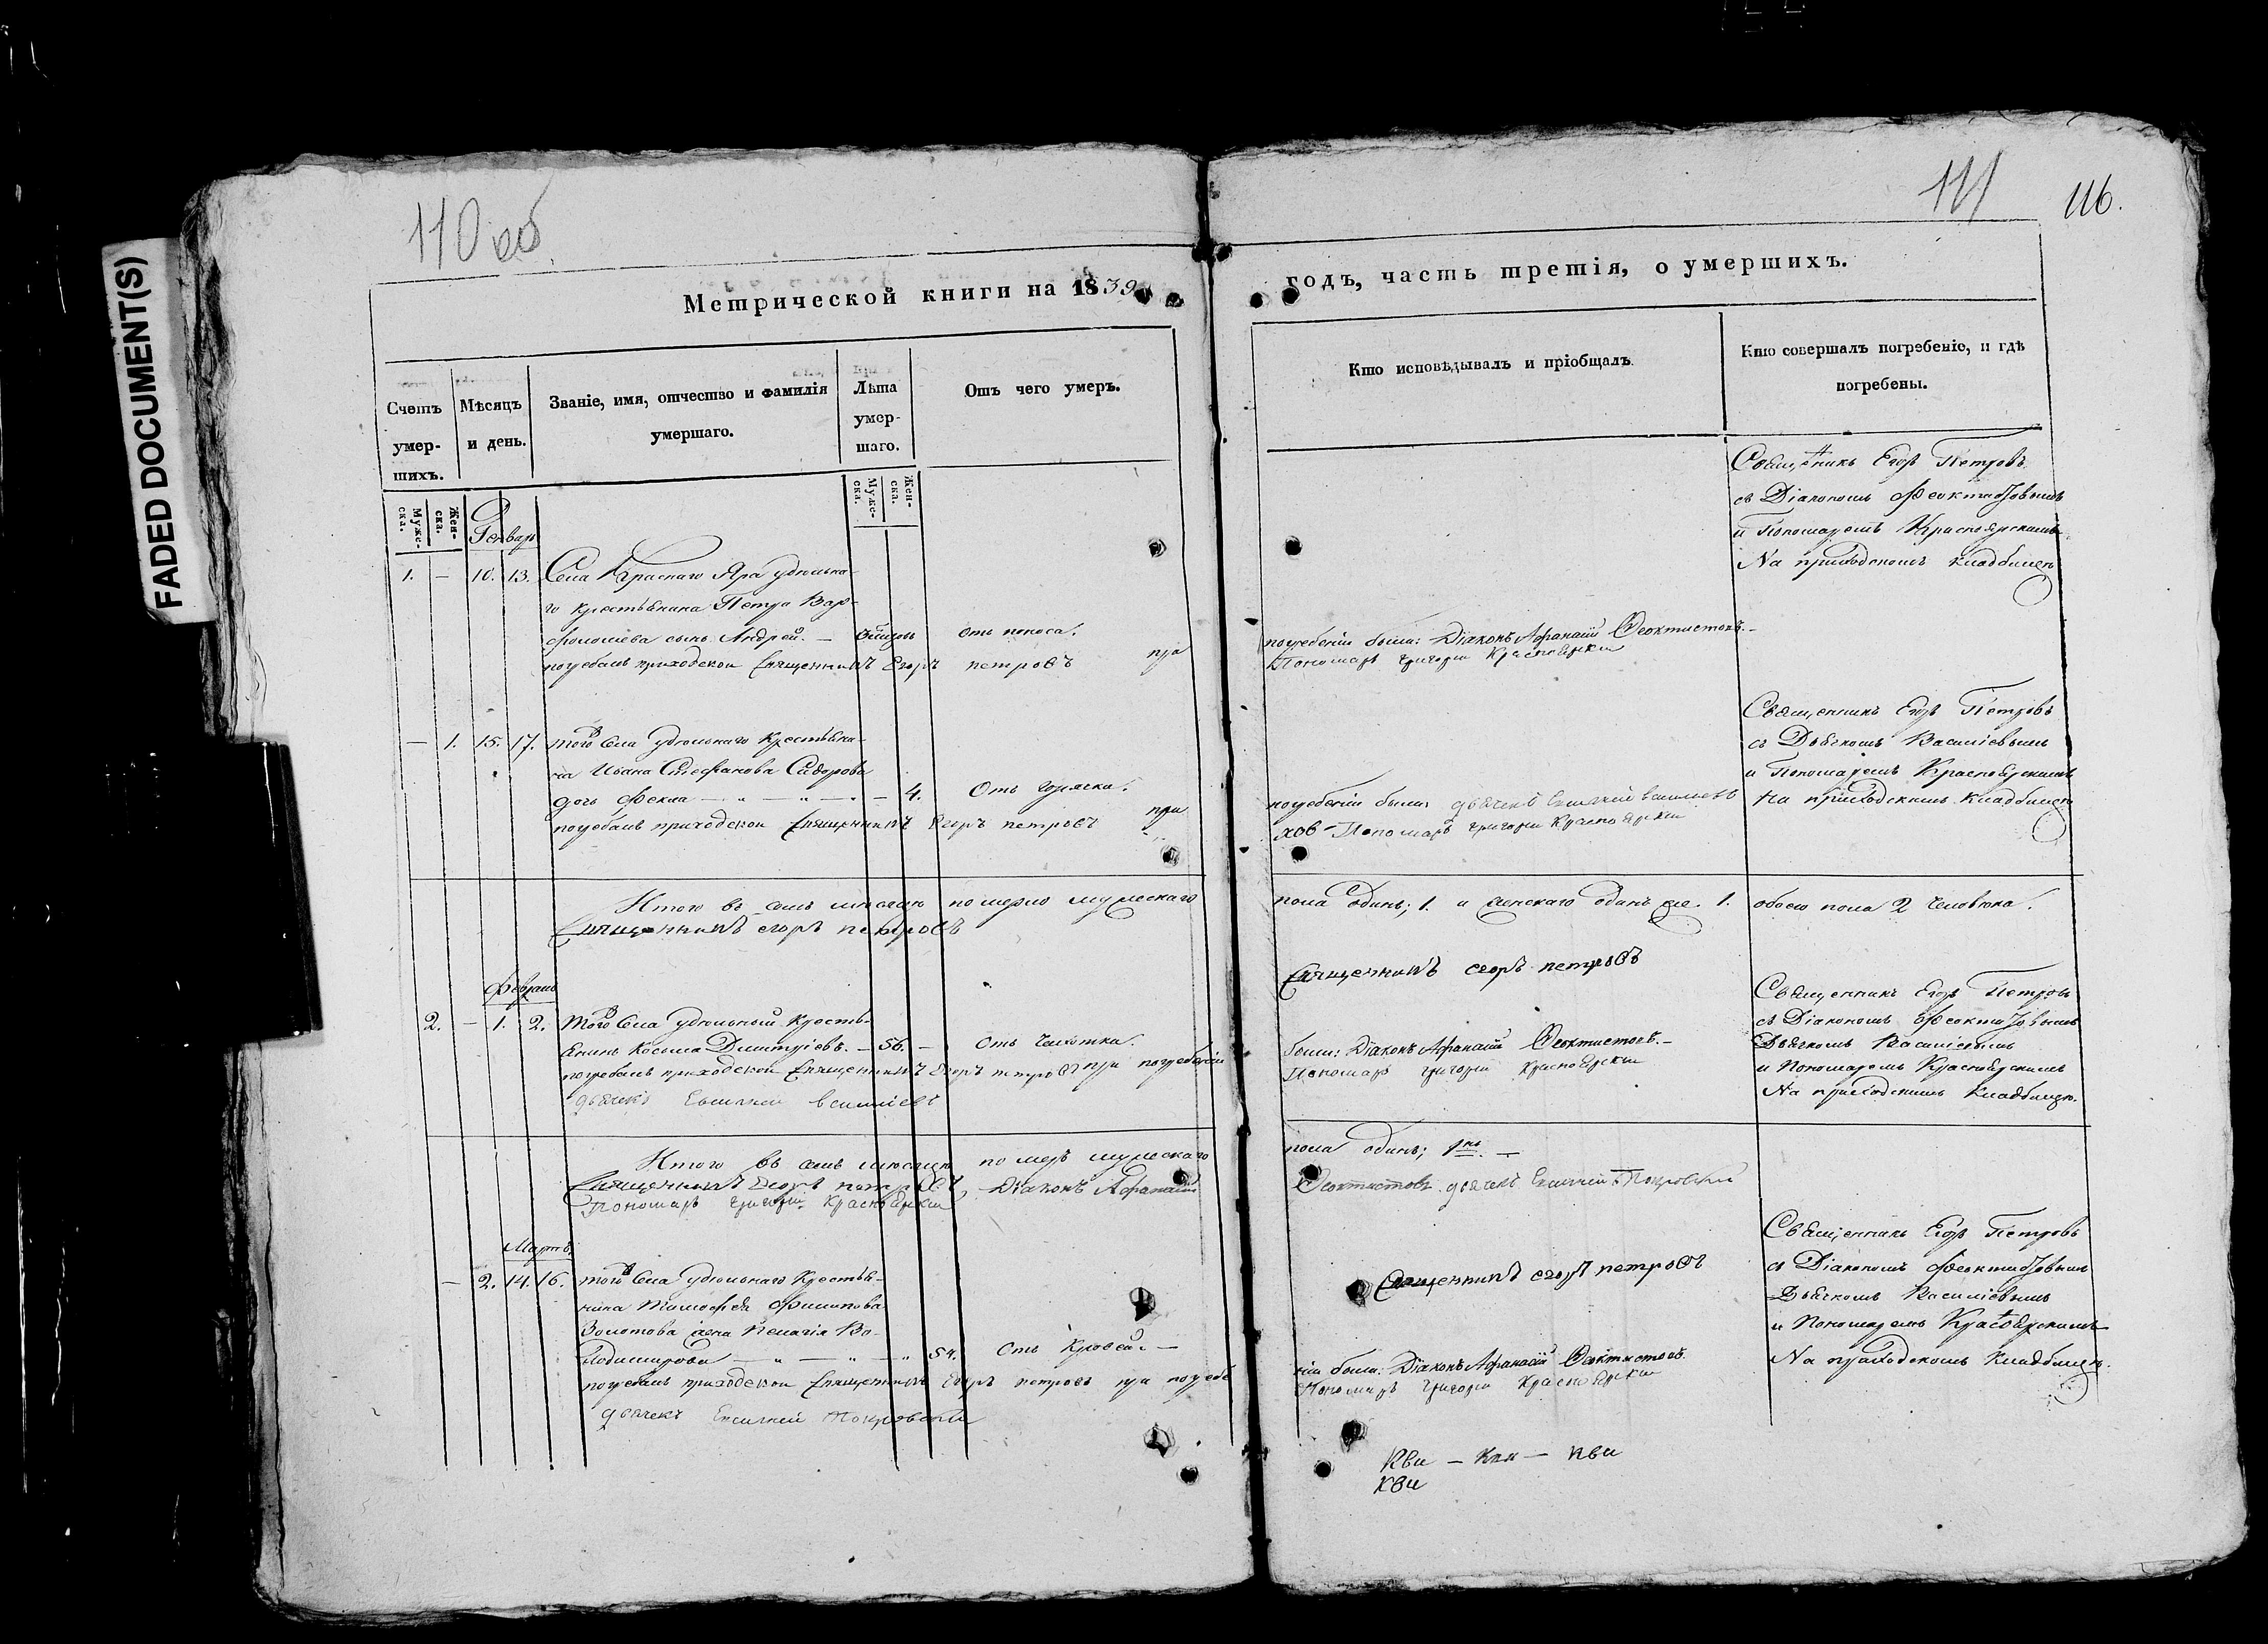 FADED DOCUMENT(S)
110 об
111
116.
Метрической книги на 1839
годъ, часть третія, о умершихъ.
Счетъ умер-шихъ.
Мѣсяцъ и день.
Званіе, имя, отчество и фамилія умершаго.
Лѣта умер-шаго.
Отъ чего умеръ.
Кто исповѣдывалъ и пріобщалъ.
Кто совершалъ погребеніе, и гдѣ погребены.
Муже-ска.
Жен-ска.
Муже-ска.
Жен-ска.
Генварь
1. — 10. 13. Села Краснаго Яра удѣльна-
го крестьянина Петра Вар-
фоломѣева сынъ Андрей. — Отъ поноса.
погребалъ приходской Священникъ Егоръ Петровъ при
погребеніи были: Діаконъ Афанасій Феоктистовъ. —
Пономарь Григорій Красноярскій
Священникъ Егоръ Петровъ
съ Діакономъ Феоктистовымъ
и Пономаремъ Красноярскимъ
На приходскомъ кладбищѣ
— 1. 15. 17. того села удѣльнаго крестьяни-
на Ивана Стефанова Сидорова
дочь Фекла — „ — „ — 4. Отъ горячки.
погребалъ приходской Священникъ Егоръ Петровъ при
погребеніи были: дьячекъ
Пономарь Григорій Красноярскій
Священникъ Егоръ Петровъ
съ Дьячкомъ Васильевымъ
и Пономаремъ Красноярскимъ
На приходскомъ кладбищѣ
Итого въ семъ мѣсяцѣ померло мужескаго
пола одинъ; 1. и женскаго одна же 1. обоего пола 2 человѣка.
Священникъ Егоръ Петровъ
Священникъ Егоръ Петровъ
Февраль
2. — 1. 2. того села удѣльный кресть-
янинъ Косьма Димитріевъ. — 56. — Отъ чахотки.
погребалъ приходской Священникъ Егоръ Петровъ при погребеніи
дьячекъ
были: Діаконъ Афанасій Феоктистовъ. —
Пономарь Григорій Красноярскій
Священникъ Егоръ Петровъ
съ Діакономъ Феоктистовымъ
Дьячкомъ Васильевымъ
и Пономаремъ Красноярскимъ
На приходскомъ кладбищѣ.
Итого въ семъ мѣсяцѣ померъ мужескаго
пола одинъ;
Священникъ Егоръ Петровъ, Діаконъ Афанасій
Феоктистовъ дьячекъ Покровскій
Пономарь Григорій Красноярскій
Мартъ
— 2. 14. 16. того села удѣльнаго крестья-
нина Тимофея Филипова
Золотова жена Пелагія Во-
лодимирова — „ — „ — „ 54. Отъ кровей. —
погребалъ приходской Священникъ Егоръ Петровъ при погребе
дьячекъ Покровскій
Священникъ Егоръ Петровъ
ніи были: Діаконъ Афанасій Феоктистовъ.
Пономарь Григорій Красноярскій
Священникъ Егоръ Петровъ
съ Діакономъ Феоктистовымъ
Дьячкомъ Васильевымъ
и Пономаремъ Красноярскимъ
На приходскомъ кладбищѣ.